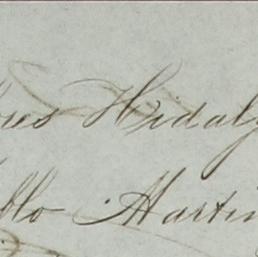 res Hidalg
blo Martin